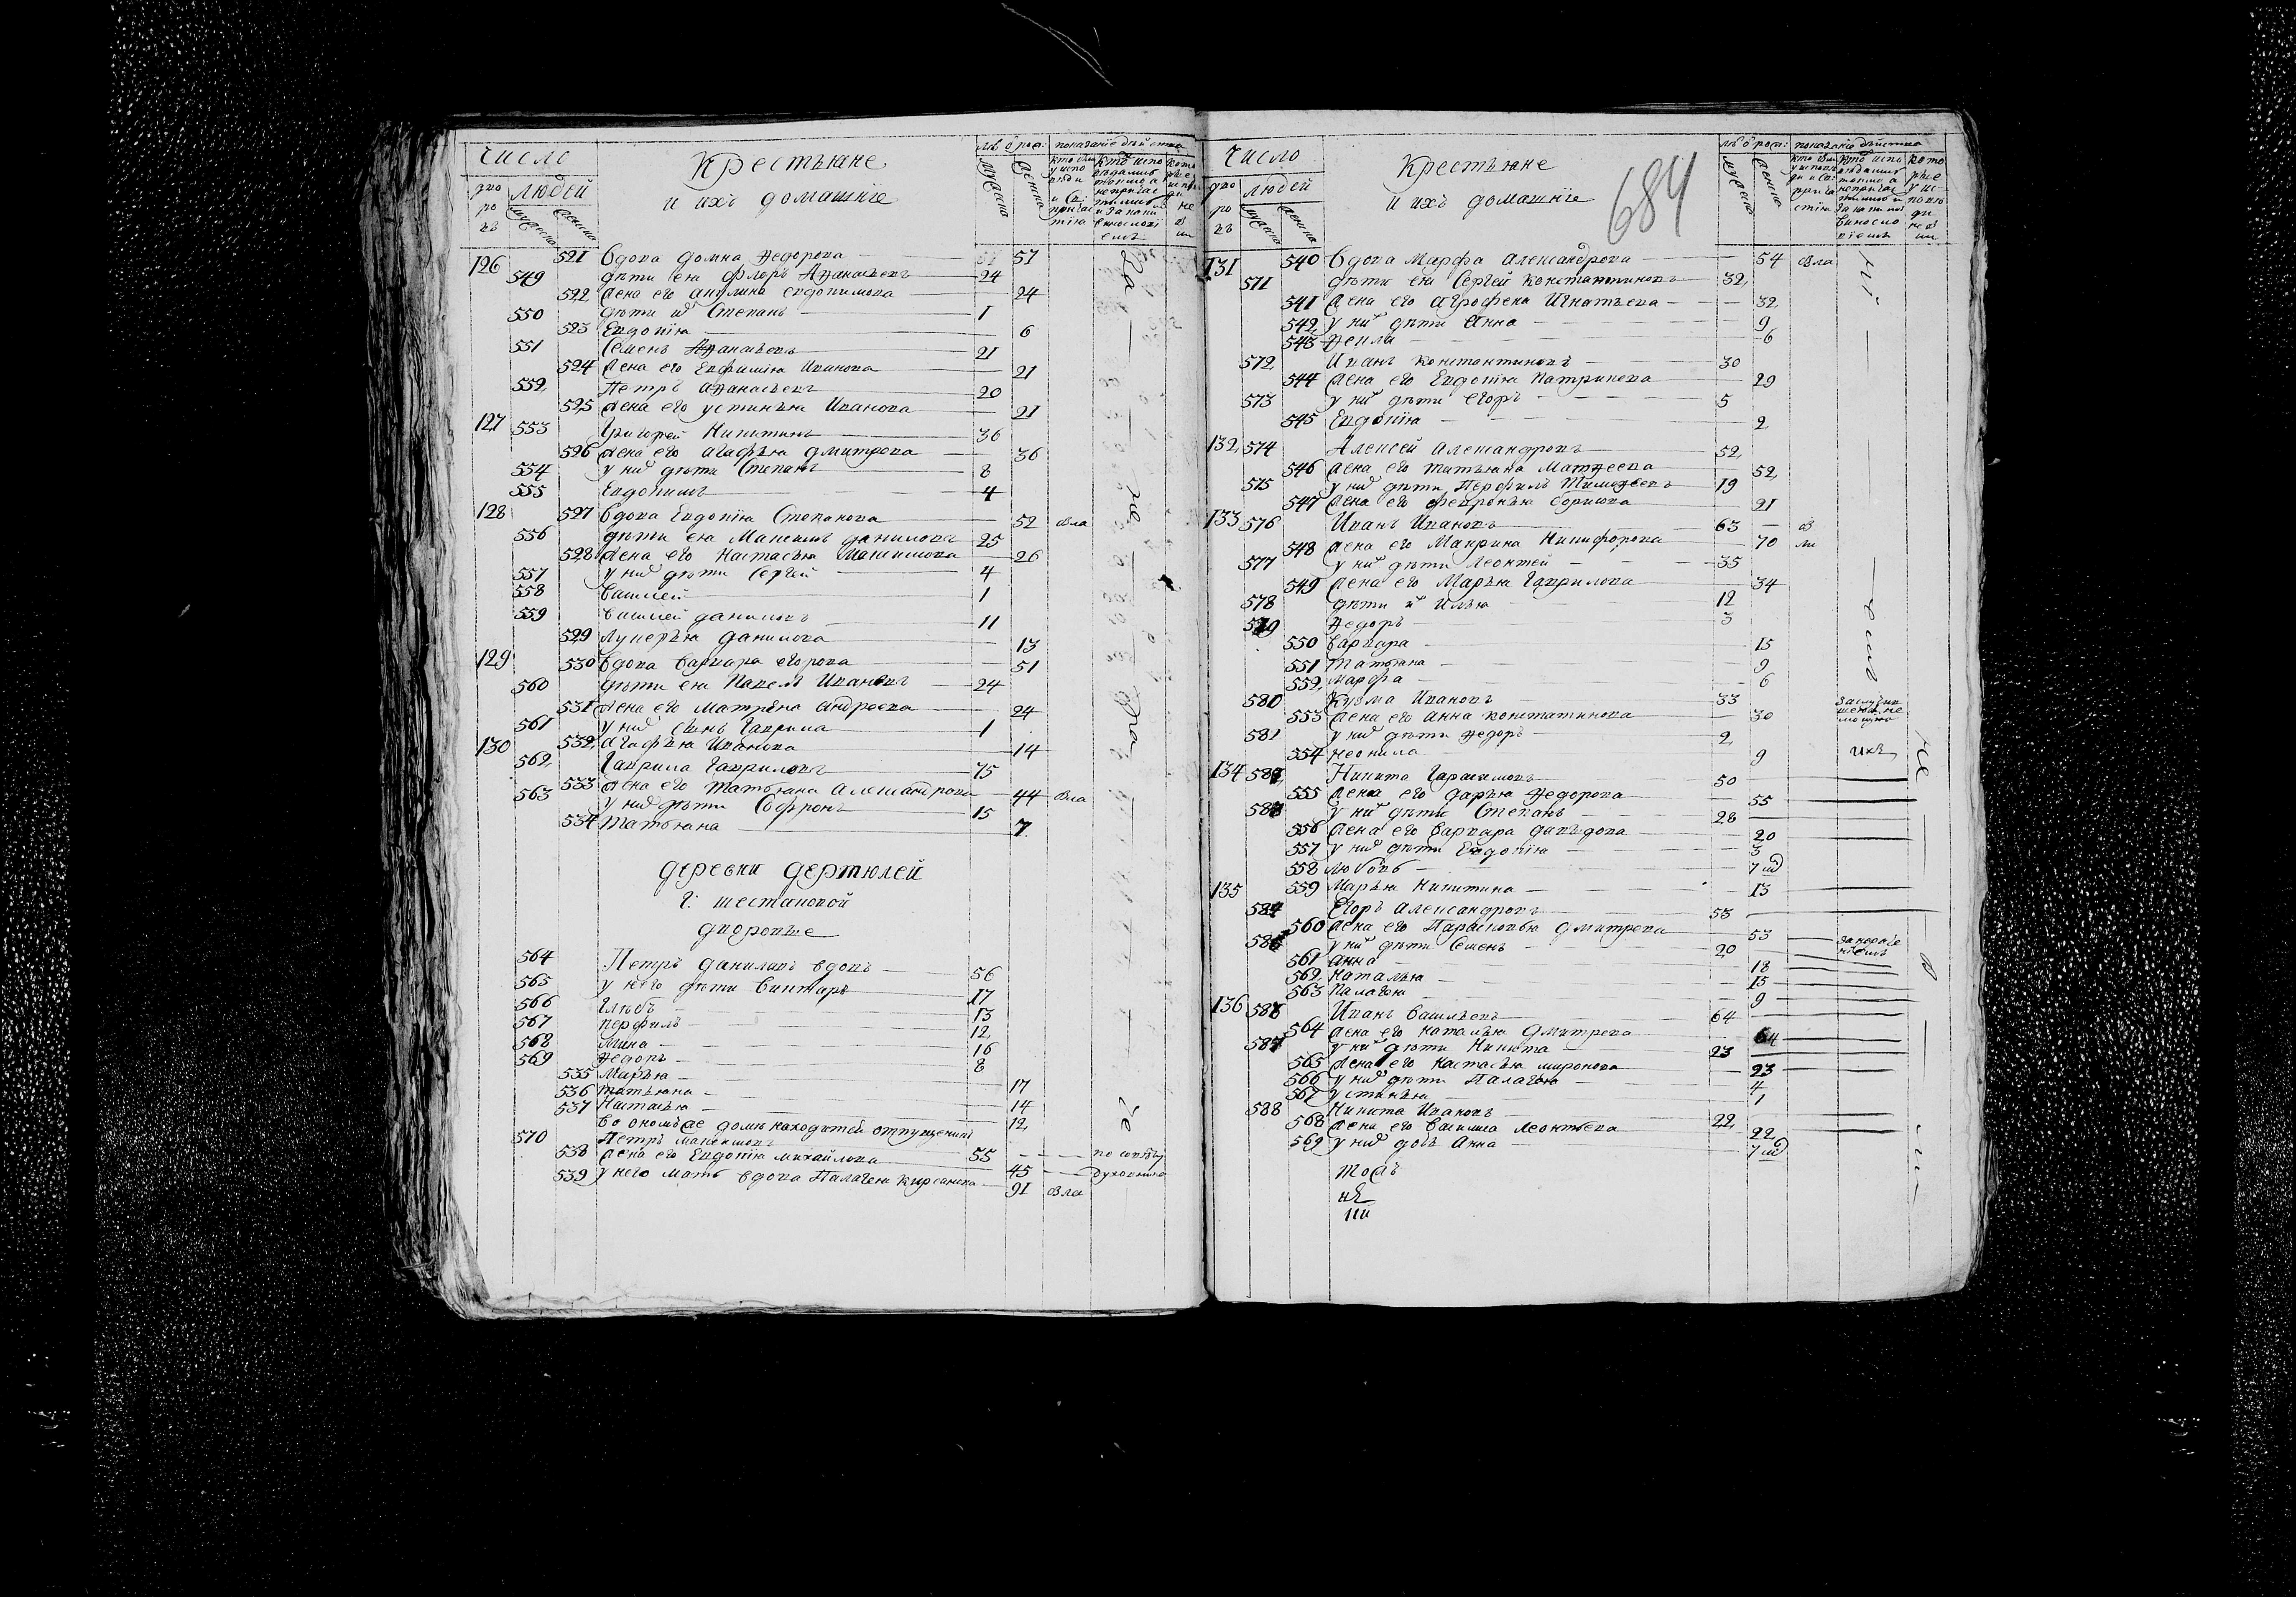 Число
дворовъ
людей
мужеска
женска
Крестьяне
и ихъ домашнїе
лѣ ѿ рож:
мужеска
женска
показанїе дѣйства
126 521 Вдова Домна Ѳедорова 57
549 дѣти ея Флоръ Аѳанасьевъ 24
522 жена его Акулина Евдокимова 24
550 дѣти их Степанъ 1
523 Евдокїя 6
551 Семенъ Аѳанасьевъ 21
524 жена его Евфимїя Иванова 21
552 Петръ Аѳанасьевъ 20
525 жена его Устинья Иванова 21
127 553 Григорей Никитинъ 36
526 жена его Агафья Дмитрева 36
554 у них дѣти Степанъ 8
555 Евдокимъ 4
128 527 Вдова Евдокїя Степанова 52 вла
556 дѣти ея Максимъ Даниловъ 25
528 жена его Настасья Максимова 26
557 у них дѣти Сергей 4
558 Василей 1
559 Василей Даниловъ 11
529 Лукерья Данилова 13
129 530 Вдова Варвара Егорова 51
560 дѣти ея Павелъ Ивановъ 24
531 жена его Матрена Андреева 24
561 у них сынъ Гаврила 1
532 Агафья Иванова 14
130 562 Гаврила Гавриловъ 75
533 жена его Татьяна Александрова 44 вла
563 у них дѣти Софронъ 15
534 Татьяна 7
Деревни Дертюлей
Г: Шестаковой
дворовые
564 Петръ Даниловъ вдовъ 56
565 у него дѣти Викторъ 17
566 Глѣбъ 13
567 Перфилъ 12
568 Мина 16
569 Ѳедоръ 8
535 Марья 17
536 Татьяна 14
537 Настасья 12
Во ономъ же доме находятся отпущении
570 Петръ Максимовъ 55
538 жена его Евдокїя Михайлова 45 по совѣту
539 у него мать вдова Палагея Кирсанова 91 вла духовника
Число
дворовъ
людей
мужеска
женска
Крестьяне
и ихъ домашнїе
684
лѣ ѿ рож:
мужеска
женска
показанїе дѣйства
131 540 Вдова Марфа Александрова 54 вла
571 дѣти ея Сергей Константиновъ 32
541 жена его Агрофена Игнатьева 32
542 у них дѣти Анна 9
543 Ѳекла 6
572 Иванъ Константиновъ 30
544 жена его Евдокїя Патрикева 29
573 у них дѣти Егоръ 5
545 Евдокїя 2
132 574 Алексей Александровъ 52
546 жена его Татьяна Матѳеева 52
575 у них дѣти Перфилъ Тимоѳеевъ 19
547 жена его Февронья Борисова 21
133 576 Иванъ Ивановъ 63
548 жена его Макрина Никифорова 70
577 у них дѣти Леонтей 35
549 жена его Марья Гаврилова 34
578 дѣти их Илья 12
579 Ѳедоръ 3
550 Варвара 15
551 Татьяна 9
552 Марфа 6
580 Кузма Ивановъ 33
553 жена его Анна Констатинова 30
581 у них дѣти Ѳедоръ 2
554 Неонила 9
134 582 Никита Гарасимовъ 50
555 жена его Дарья Ѳедорова 55
583 у них дѣти Степанъ 28
556 жена его Варвара Давыдова 20
557 у них дѣти Евдокїя 3
558 Любовь 7 м
135 559 Марья Никитина 13
584 Егоръ Александровъ 53
560 жена его Парасковья Дмитрева 53
585 у них дѣти Семенъ 20
561 Анна 18
562 Наталья 15
563 Палагея 9
136 586 Иванъ Васильевъ 64
564 жена его Наталья Дмитрева 64
587 у них дѣти Никита 23
565 жена его Настасья Миронова 23
566 у них дѣти Палагея 4
567 Устинья 1
588 Никита Ивановъ 22
568 жена его Василиса Леонтьева 22
569 у них дочь Анна 7 м